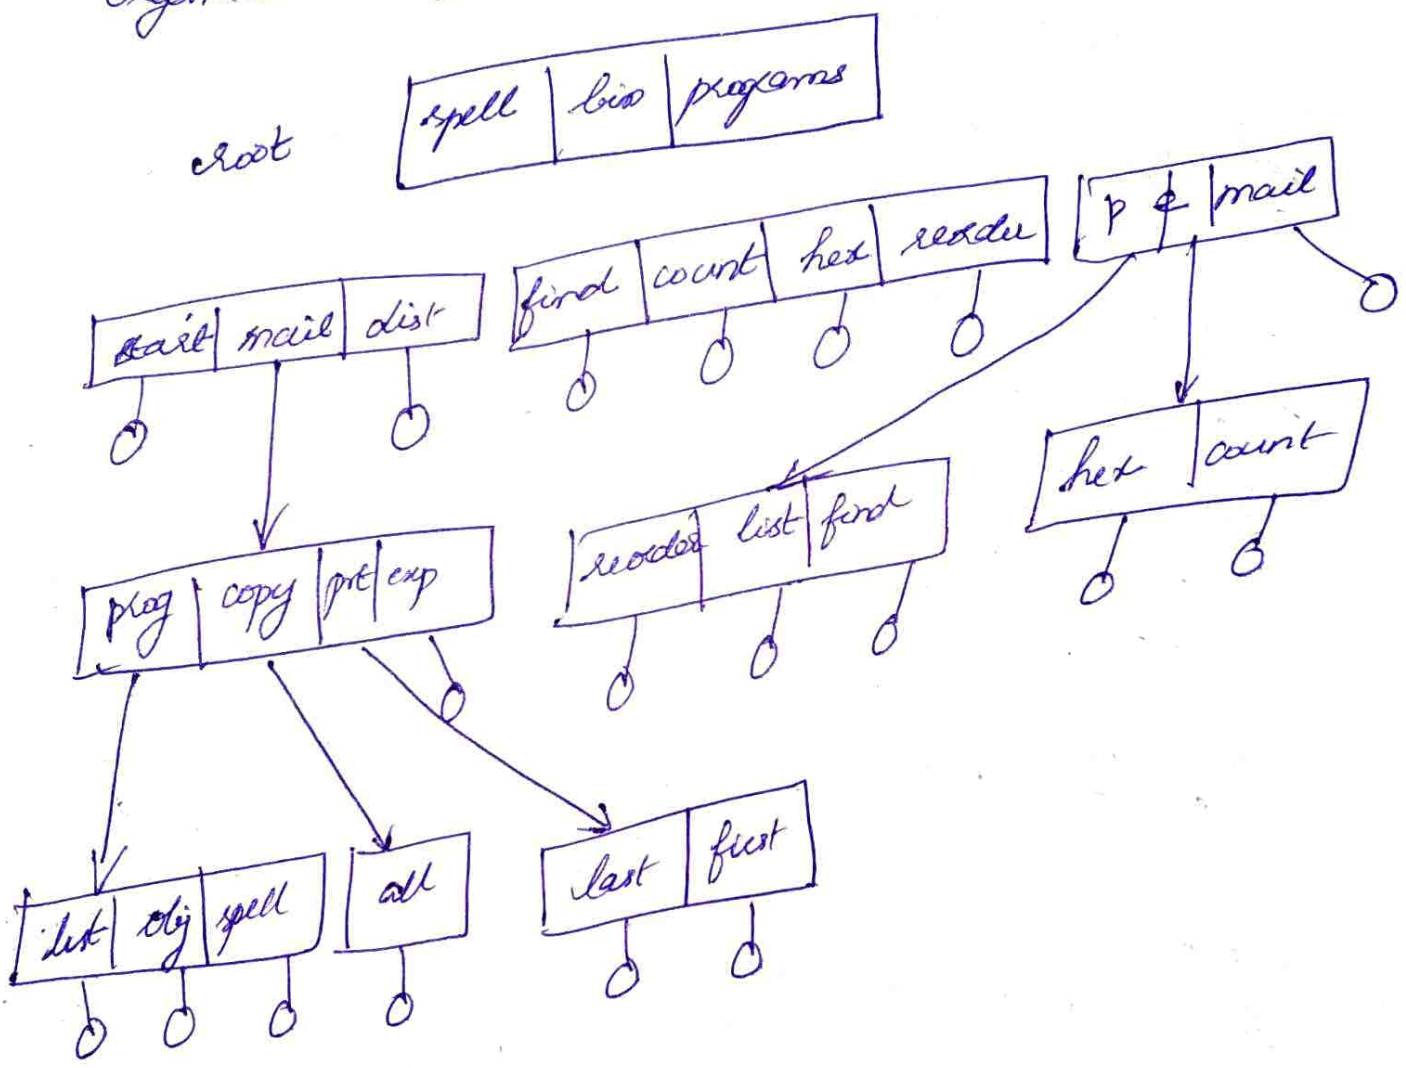 root
spell bin programs
start mail dist
find count hex reorder
p e mail
prog copy prt exp
reorder list find
hex count
list obj spell
all
last first